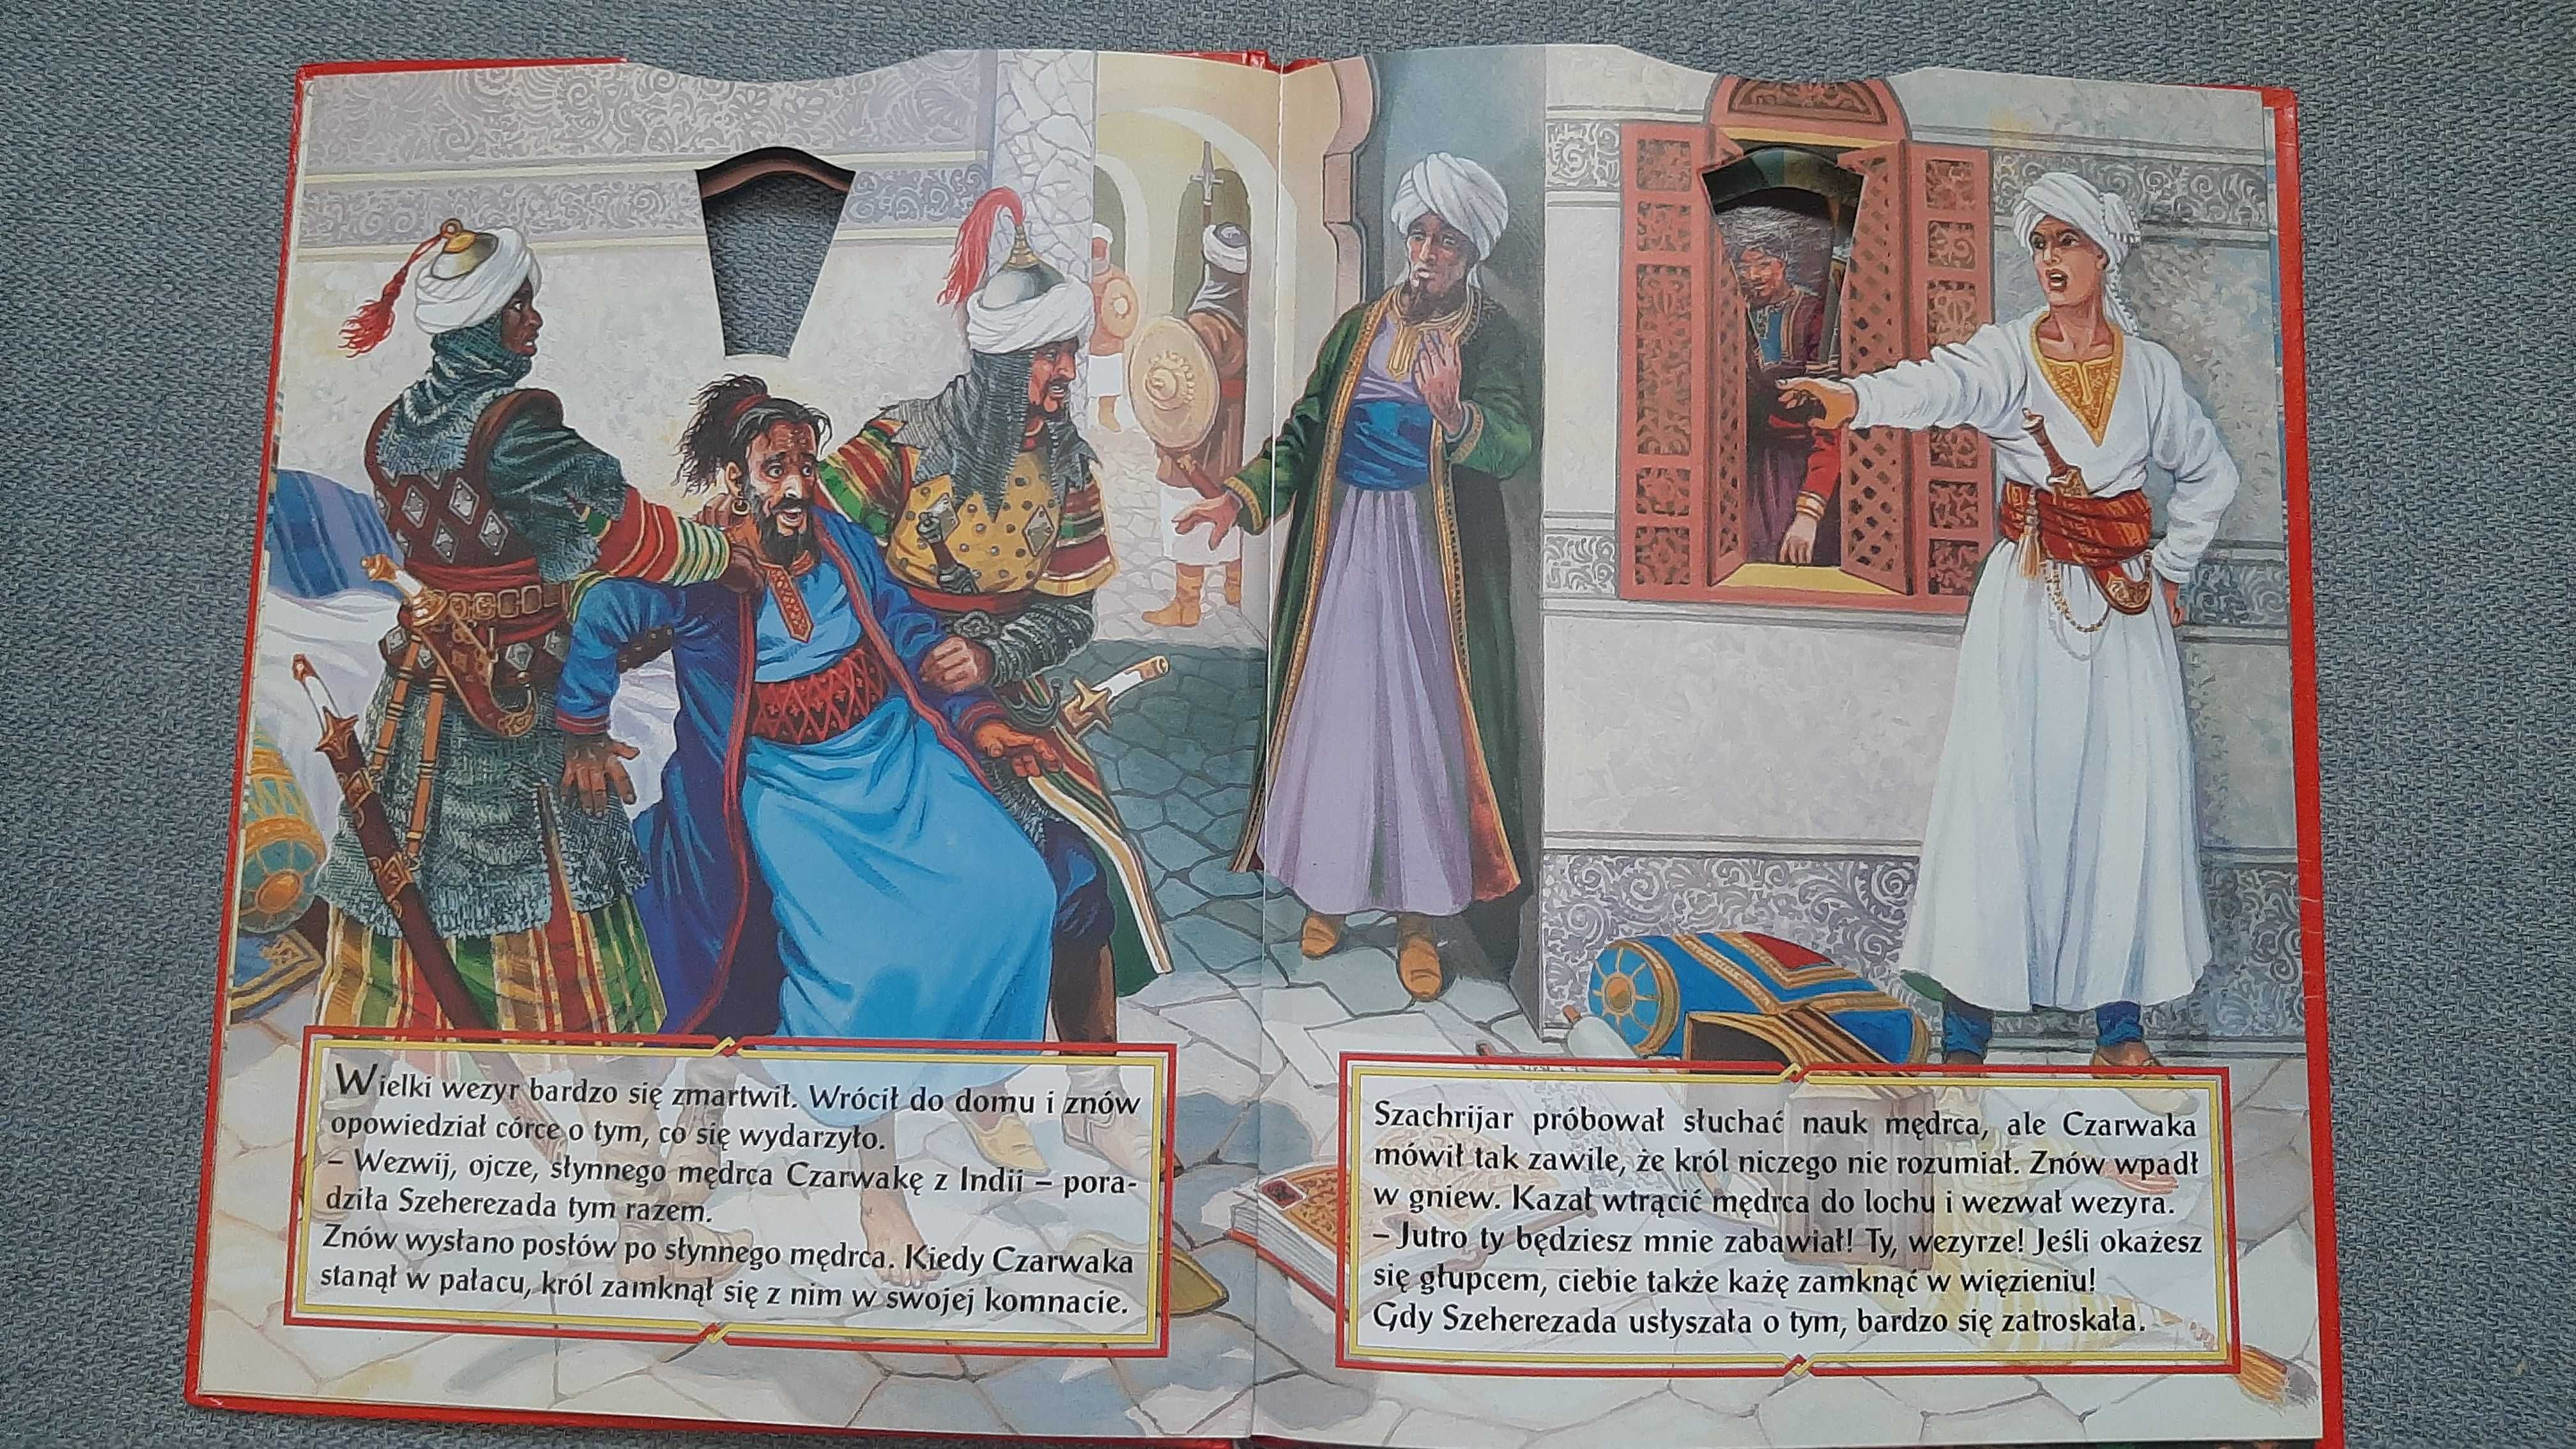 Wielki wezyr bardzo się zmartwił. Wrócił do domu i znów
opowiedział córce o tym, co się wydarzyło.
– Wezwij, ojcze, słynnego mędrca Czarwakę z Indii – pora-
dziła Szeherezada tym razem.
Znów wysłano posłów po słynnego mędrca. Kiedy Czarwaka
stanął w pałacu, król zamknął się z nim w swojej komnacie.
Szachrijar próbował słuchać nauk mędrca, ale Czarwaka
mówił tak zawile, że król niczego nie rozumiał. Znów wpadł
w gniew. Kazał wtrącić mędrca do lochu i wezwał wezyra.
– Jutro ty będziesz mnie zabawiał! Ty, wezyrze! Jeśli okażesz
się głupcem, ciebie także każę zamknąć w więzieniu!
Gdy Szeherezada usłyszała o tym, bardzo się zatroskała.